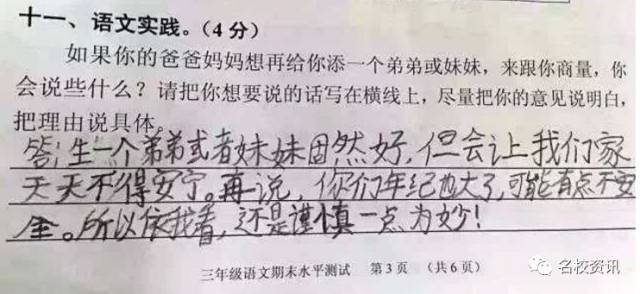 十一、语文实践。（4分）
如果你的爸爸妈妈想再给你添一个弟弟或妹妹，来跟你商量，你
会说些什么？请把你想要说的话写在横线上，尽量把你的意见说明白，
把理由说具体。
答：生一个弟弟或者妹妹固然好，但会让我们家
天天不得安宁。再说，你们年纪也大了，可能有点不安
全。所以依我看，还是谨慎一点为妙！
三年级语文期末水平测试 第3页 （共6页）
名校资讯